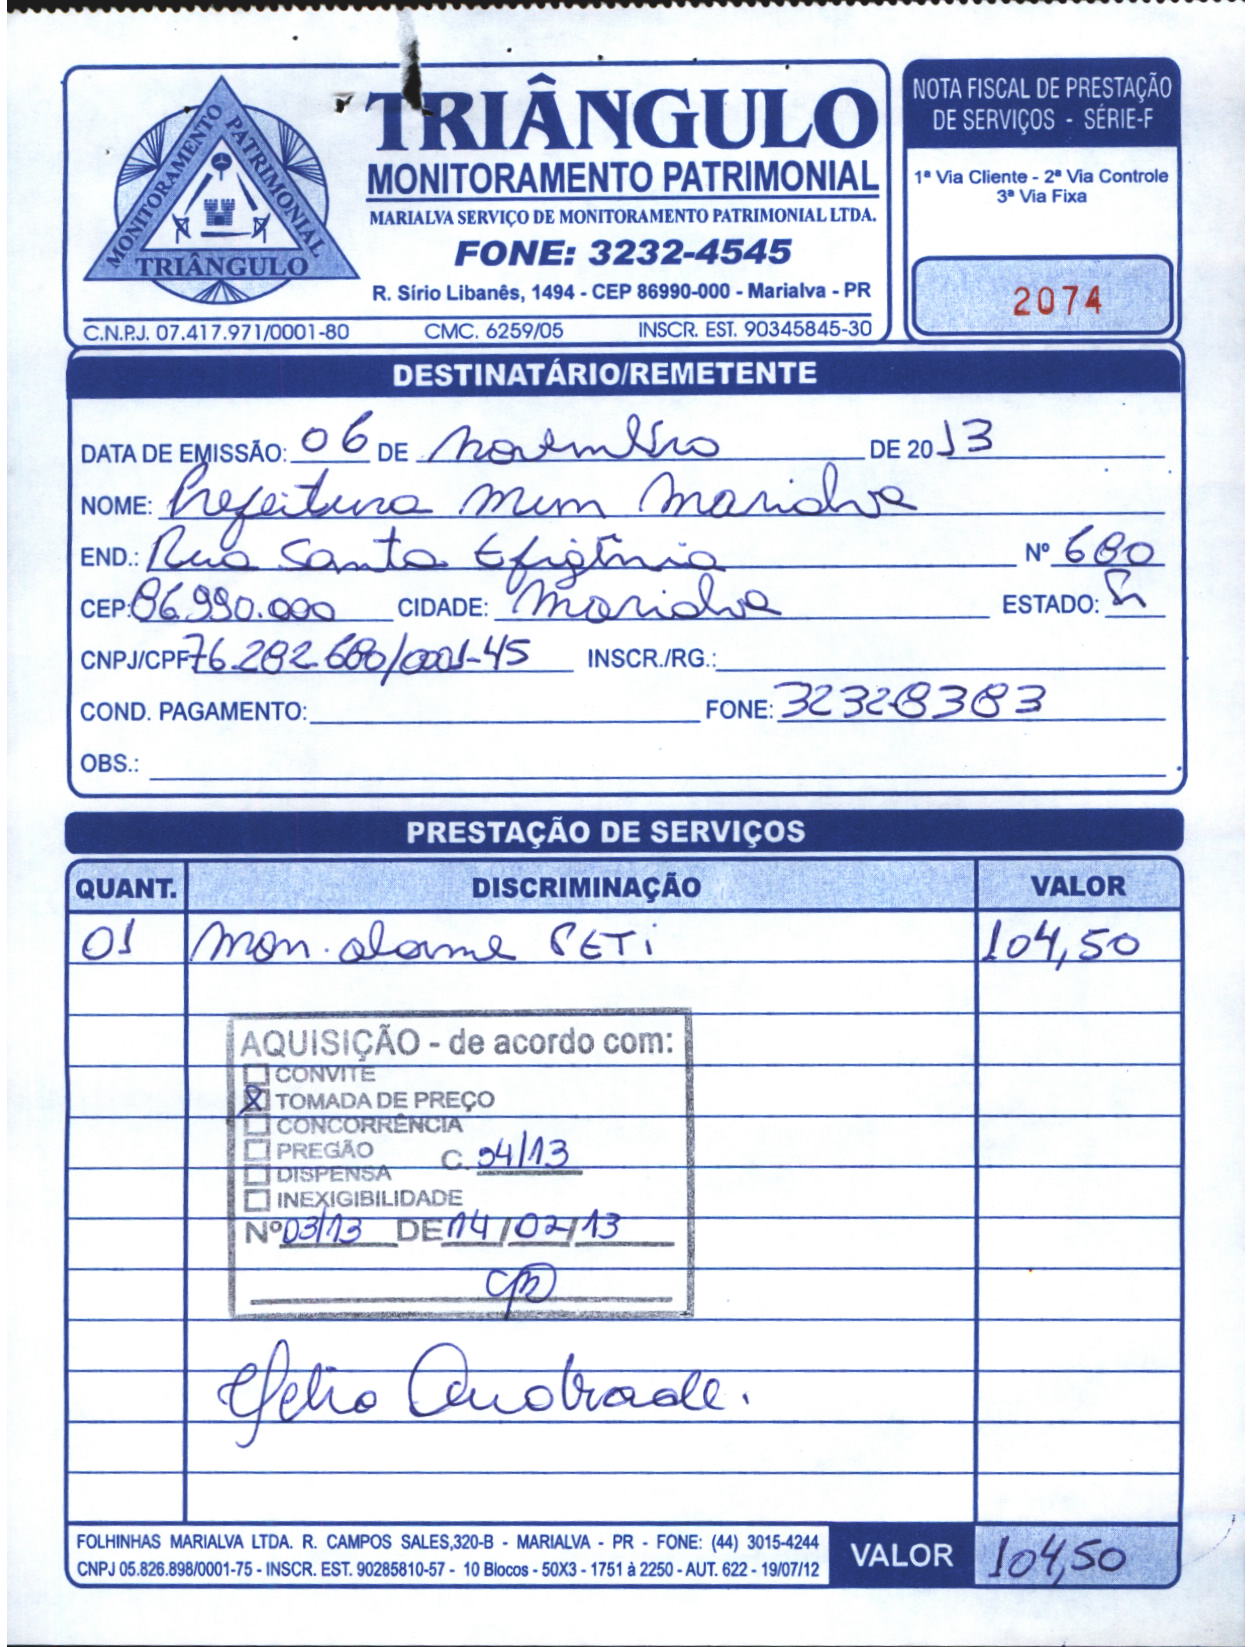 MONITORAMENTO PATRIMONIAL
TRIÂNGULO
TRIÂNGULO
MONITORAMENTO PATRIMONIAL
MARIALVA SERVIÇO DE MONITORAMENTO PATRIMONIAL LTDA.
FONE: 3232-4545
R. Sírio Libanês, 1494 - CEP 86990-000 - Marialva - PR
C.N.P.J. 07.417.971/0001-80 CMC. 6259/05 INSCR. EST. 90345845-30
NOTA FISCAL DE PRESTAÇÃO
DE SERVIÇOS - SÉRIE-F
1ª Via Cliente - 2ª Via Controle
3ª Via Fixa
2074
DESTINATÁRIO/REMETENTE
DATA DE EMISSÃO: 06 DE novembro DE 2013
NOME: Prefeitura Mun Marialva
END.: Rua Santa Efigênia Nº 680
CEP: 86.990.000 CIDADE: Marialva ESTADO: Pr
CNPJ/CPF 76.282.680/0001-45 INSCR./RG.:
COND. PAGAMENTO: FONE: 32328383
OBS.:
PRESTAÇÃO DE SERVIÇOS
QUANT. DISCRIMINAÇÃO VALOR
01 Mon. alarme PETi 104,50
AQUISIÇÃO - de acordo com:
CONVITE
X TOMADA DE PREÇO
CONCORRÊNCIA
PREGÃO C. 04/13
DISPENSA
INEXIGIBILIDADE
Nº 03/13 DE 14/02/13
Hélio Andrade.
FOLHINHAS MARIALVA LTDA. R. CAMPOS SALES,320-B - MARIALVA - PR - FONE: (44) 3015-4244
CNPJ 05.826.898/0001-75 - INSCR. EST. 90285810-57 - 10 Blocos - 50X3 - 1751 à 2250 - AUT. 622 - 19/07/12
VALOR 104,50